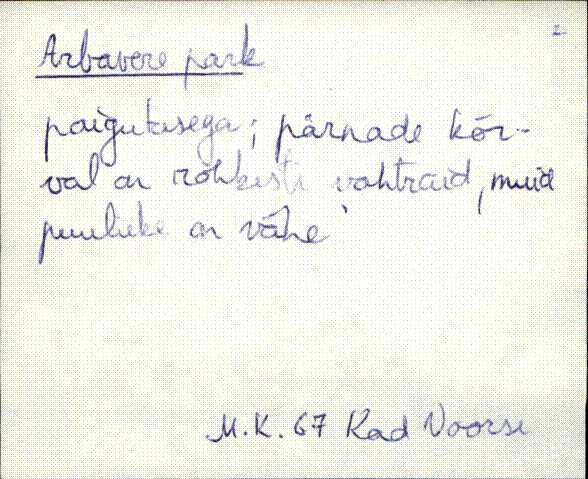 2
Arbavere park
paigutusega; pärnade kõr-
val on rohkesti vahtraid, muid
puuliike on vähe
M.K. 67 Kad Voorse